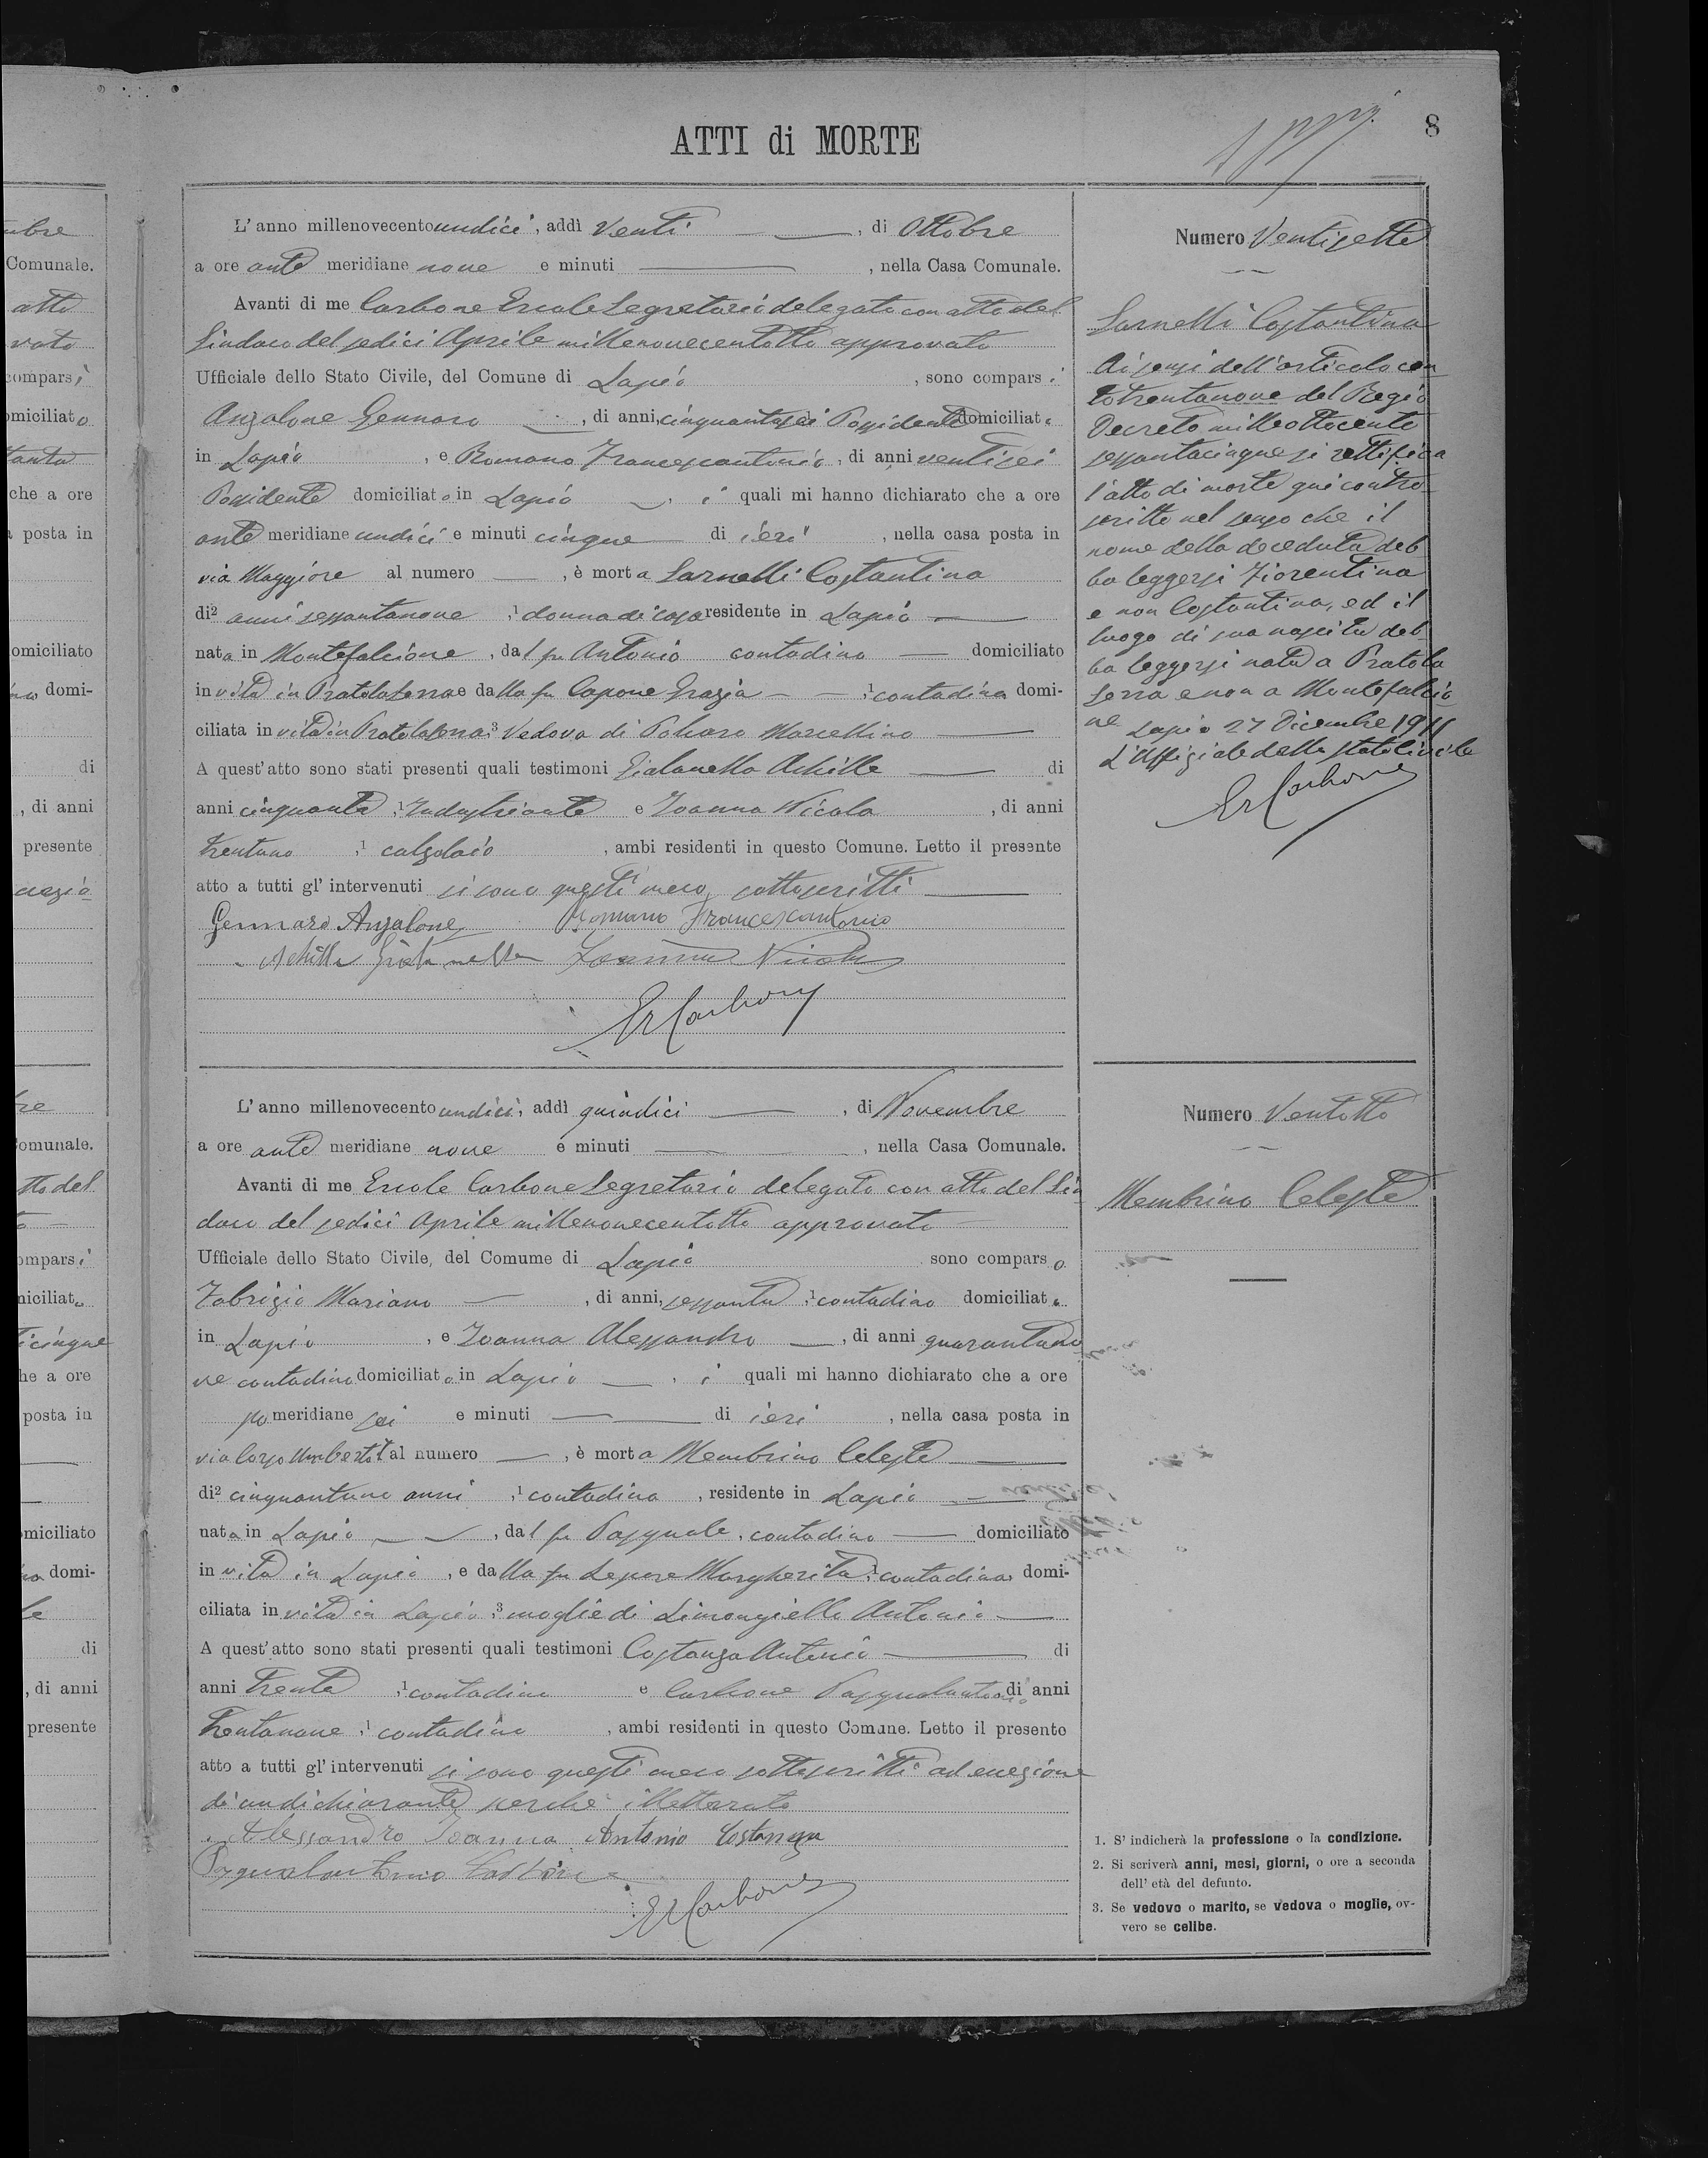 8
ATTI di MORTE
L'anno millenovecento undici, addì Venti, di Ottobre
a ore ante meridiane nove e minuti, nella Casa Comunale.
Avanti di me Carbone Ercole Segretario delegato con atto del
Sindaco del sedici Aprile millenovecentotto approvato
Ufficiale dello Stato Civile, del Comune di Lapio, sono comparsi
Anzalone Gennaro, di anni cinquantasei Possidente domiciliato
in Lapio, e Romano Francescantonio, di anni ventisei
Possidente domiciliato in Lapio, i quali mi hanno dichiarato che a ore
ante meridiane undici e minuti cinque di ieri, nella casa posta in
via Maggiore al numero, è morta Sarnelli Costantina
di² anni sessantanove ,¹ donna di casa residente in Lapio
nata in Montefalcione, dal fu Antonio contadino domiciliato
in vita in Pratola Serra e dalla fu Capone Grazia ,¹ contadina domi-
ciliata in vita in Pratola Serra ³ Vedova di Marcellino
A quest'atto sono stati presenti quali testimoni Gialanella Achille di
anni cinquanta ,¹ Industriante e Joanna Nicola, di anni
trentuno ,¹ calzolaio, ambi residenti in questo Comune. Letto il presente
atto a tutti gl'intervenuti si sono questi meco sottoscritti
Gennaro Anzalone Romano Francescantonio
Achille Gialanella Joanna Nicola
Er Carbone
Numero Ventisette
Sarnelli Costantina
Ai sensi dell'articolo cen
totrentanove del Regio
Decreto milleottocento
sessantacinque si rettifica
l'atto di morte qui contro
scritto nel senso che il
nome della deceduta deb
ba leggersi Fiorentina
e non Costantina, ed il
luogo di sua nascita deb
ba leggersi nata a Pratola
Serra e non a Montefalcio
ne Lapio 27 Dicembre 1911
L'Uffiziale dello stato Civile
Er Carbone
L'anno millenovecento undici, addì quindici, di Novembre
a ore ante meridiane nove e minuti, nella Casa Comunale.
Avanti di me Ercole Carbone Segretario delegato con atto del Sin
daco del sedici Aprile millenovecentotto approvato
Ufficiale dello Stato Civile, del Comume di Lapio sono comparso
Fabrizio Mariano, di anni, sessanta ,¹ contadino domiciliato
in Lapio, e Joanna Alessandro, di anni quarantano
ve contadino domiciliato in Lapio, i quali mi hanno dichiarato che a ore
po meridiane sei e minuti di ieri, nella casa posta in
via Corso Umberto I al numero, è morta Membrino Celeste
di² cinquantuno anni ,¹ contadina, residente in Lapio
nata in Lapio, dal fu Pasquale, contadino domiciliato
in vita in Lapio, e dalla fu Lepore Margherita ,¹ contadina domi-
ciliata in vita in Lapio ,³ moglie di Limongiello Antonio
A quest'atto sono stati presenti quali testimoni Costanza Antonio di
anni trenta ,¹ contadino e Carbone Pasqualantonio di anni
Trentanove ,¹ contadino, ambi residenti in questo Comune. Letto il presento
atto a tutti gl'intervenuti si sono questi meco sottoscritti ad eccezione
di un dichiarante perchè illetterato
Alessandro Joanna Antonio Costanza
Pasqualantonio Carbone
Er Carbone
Numero Ventotto
Membrino Celeste
1. S'indicherà la professione o la condizione.
2. Si scriverà anni, mesi, giorni, o ore a seconda
dell'età del defunto.
3. Se vedovo o marito, se vedova o moglie, ov-
vero se celibe.